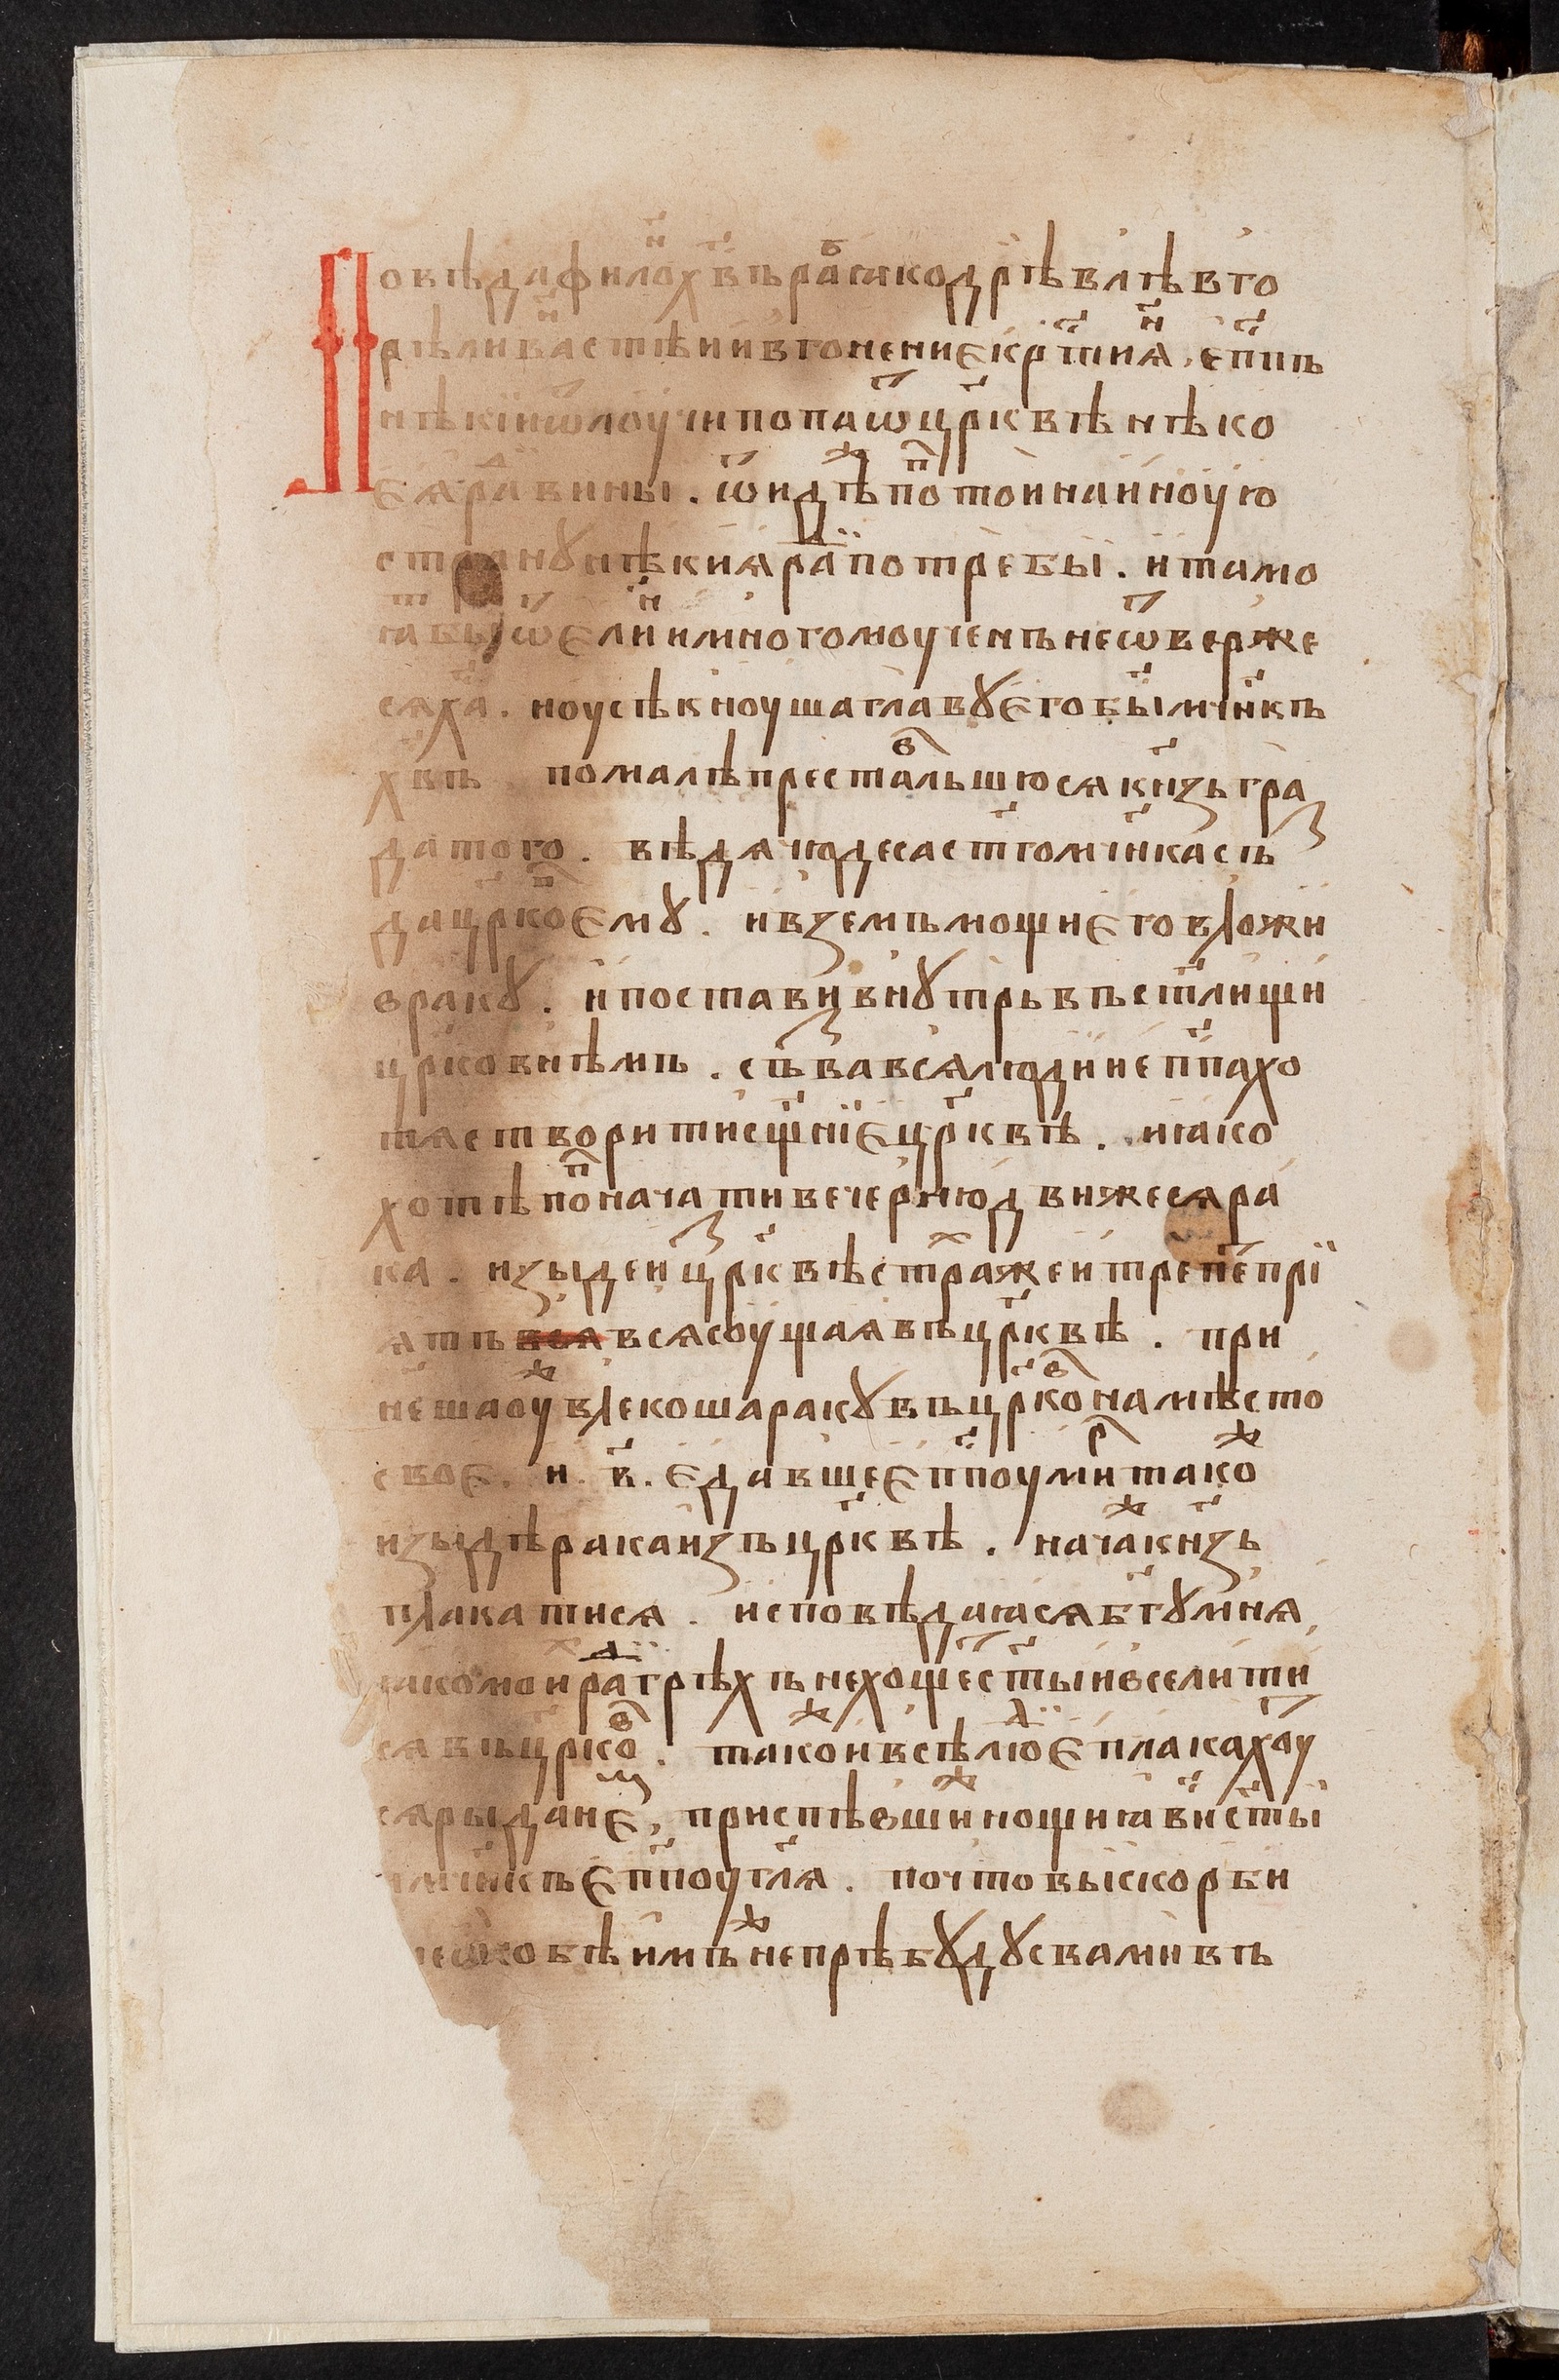 Повѣда филохⷭ҇въ раⷠ҇ ꙗко дрѣвлѣ в го
рѣлиⷩ҇ вастѣй и в гонение крⷭ҇тиⷩ҇ꙗ. еппⷭ҇ъ
нѣкїи ѿлоучи попа ѿ црⷭ҇квѣ нѣко
еꙗ раⷣ вины. ѿидⷤѣ поⷫ҇ тои на йноую
странꙋ нѣкиꙗ раⷣ потребы. и тамо
ꙗⷮ бы ѿ елиⷩ҇ и много моученъ не ѿверже
сѧ хаⷭ҇. но усѣкноуша главꙋ его быⷭ҇ мчⷭ҇нкъ
хвⷭ҇ъ помалѣ престаⷡльшюсѧ кнⷭ҇зь гра
да того. вѣдѧ чюдеса стⷭ҇го мчⷭ҇нка съ
дⷥа црⷭ҇коⷡ емꙋ. и вземъ мощи его вложи
в ракꙋ. и постави внꙋтрь въ стⷭ҇лищи
црковнѣмъ. съⷥва всѧ люди и еппⷭ҇а хо
тѧ створити сщⷭ҇нїе црⷭ҇квѣ. и ꙗко
хотѣ поⷫ҇ начати вечернюю движесѧ ра
ка. изыде иⷥ црⷭ҇квѣ страⷯ же и трепеⷮ прї
ѧтъ всѧ соущаꙗ въ црⷭ҇квѣ. при
неⷭ҇шаⷤ оувлекоша ракꙋ въ црⷭ҇коⷡ на мѣсто
свое. и.в҃. е давше еппⷭ҇оу миⷬ тако
изыдѣ рака изъ црⷭ҇квѣ. начаⷤ кнⷭ҇зь
плакатисѧ. исповѣдаꙗсѧ бгⷭ҇ꙋ мнꙗ,
ꙗко мои раⷣ грѣхъ не хощеⷮ стⷭ҇ый вселити
сѧ въ црⷭ҇коⷡ. такоⷤ и всѣ люⷣе плакахоу
сѧ рыдание, приспѣвшиⷤ нощи ꙗвисⷭ҇ стⷭ҇ы
мчⷭ҇нкъ еппⷭ҇оу глꙗ. почто вы скорби
те ѡ собѣ имъⷤ не прѣбꙋдꙋ с вами въ